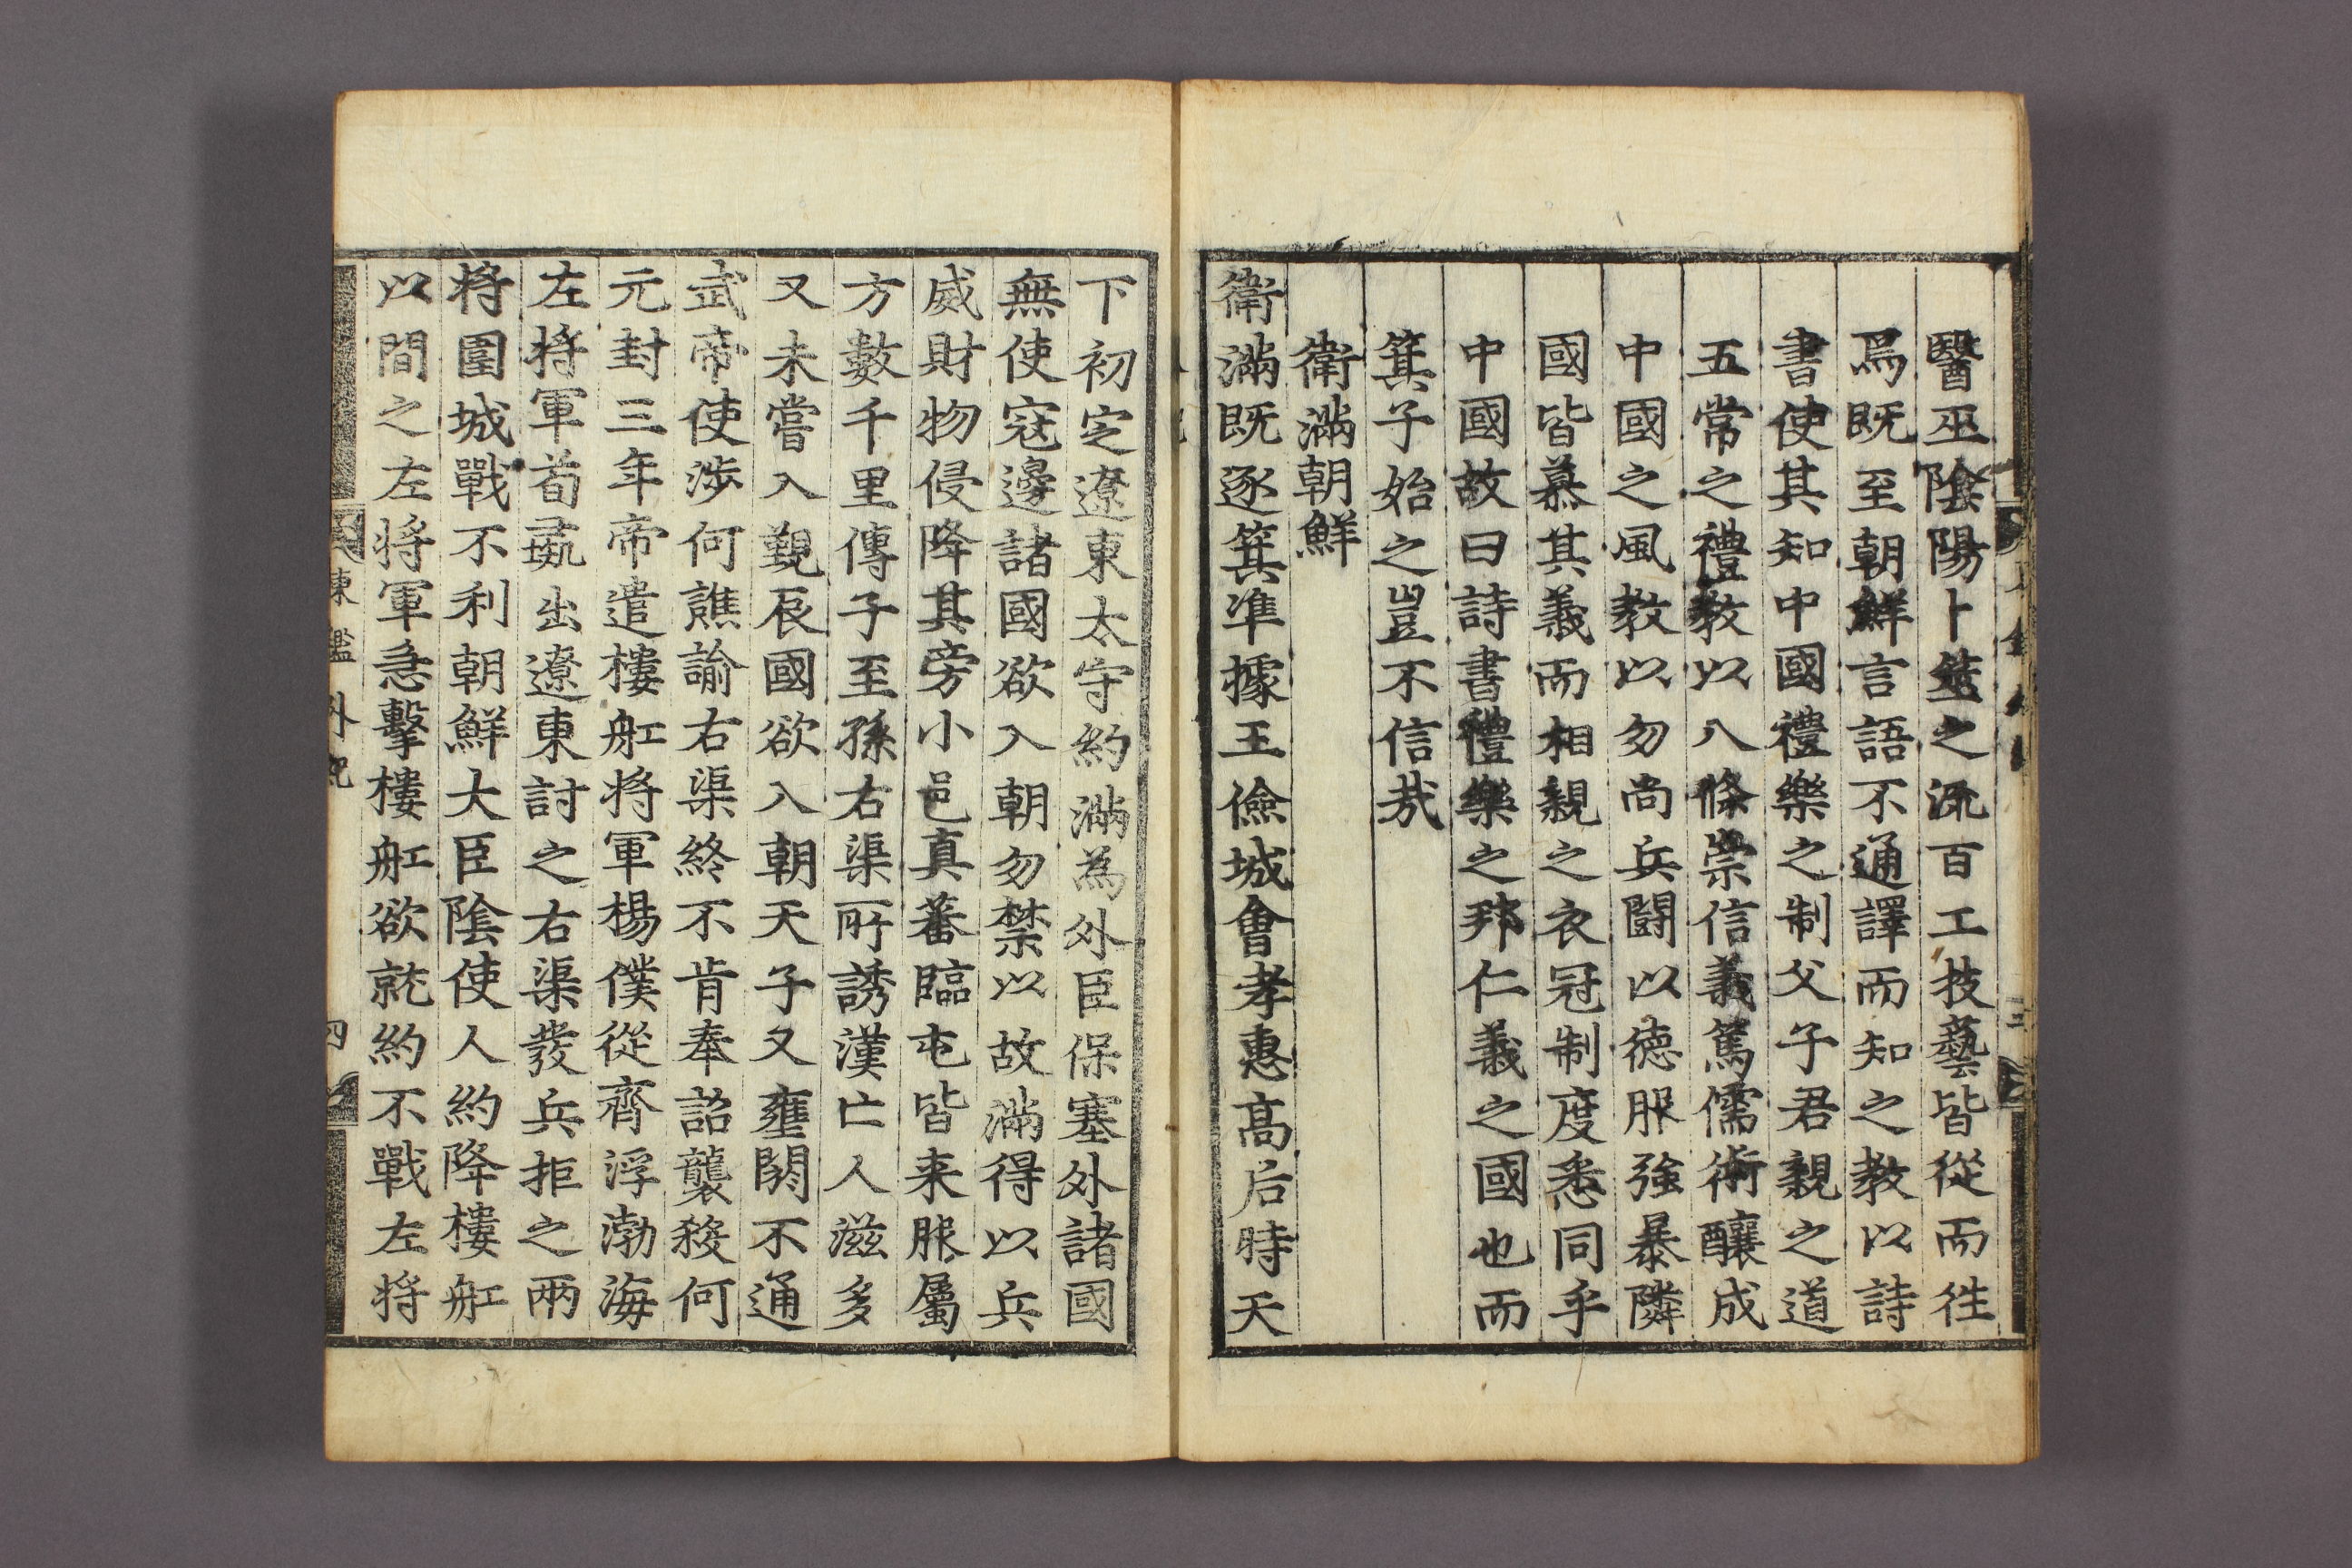 醫巫陰陽卜筮之流百工技藝皆從而徃
爲既至朝鮮言語不通譯而知之教以詩
書使其知中國禮樂之制父子君親之道
五常之禮教以八條崇信義篤儒術釀成
中國之風教以勿尚兵闘以徳服強暴隣
國皆慕其義而相親之衣冠制度悉同乎
中國故曰詩書禮樂之邦仁義之國也而
箕子始之豈不信㢤
衛滿朝鮮
衛滿既逐箕準據王儉城會孝惠髙后時天
下初定遼東太守約滿為外臣保塞外諸國
無使寇邊諸國欲入朝勿禁以故滿得以兵
威財物侵降其旁小邑真蕃臨屯皆来服屬
方數千里傳子至孫右渠所誘漢亡人滋多
又未嘗入覲辰國欲入朝天子又壅閼不通
武帝使涉何譙諭右渠終不肯奉詔襲殺何
元封三年帝遣樓舡将軍楊僕從齊浮渤海
左将軍荀彘出遼東討之右渠發兵拒之兩
将圍城戰不利朝鮮大臣陰使人約降樓舡
以間之左将軍急擊樓舡欲就約不戰左将
東鑑外紀
四